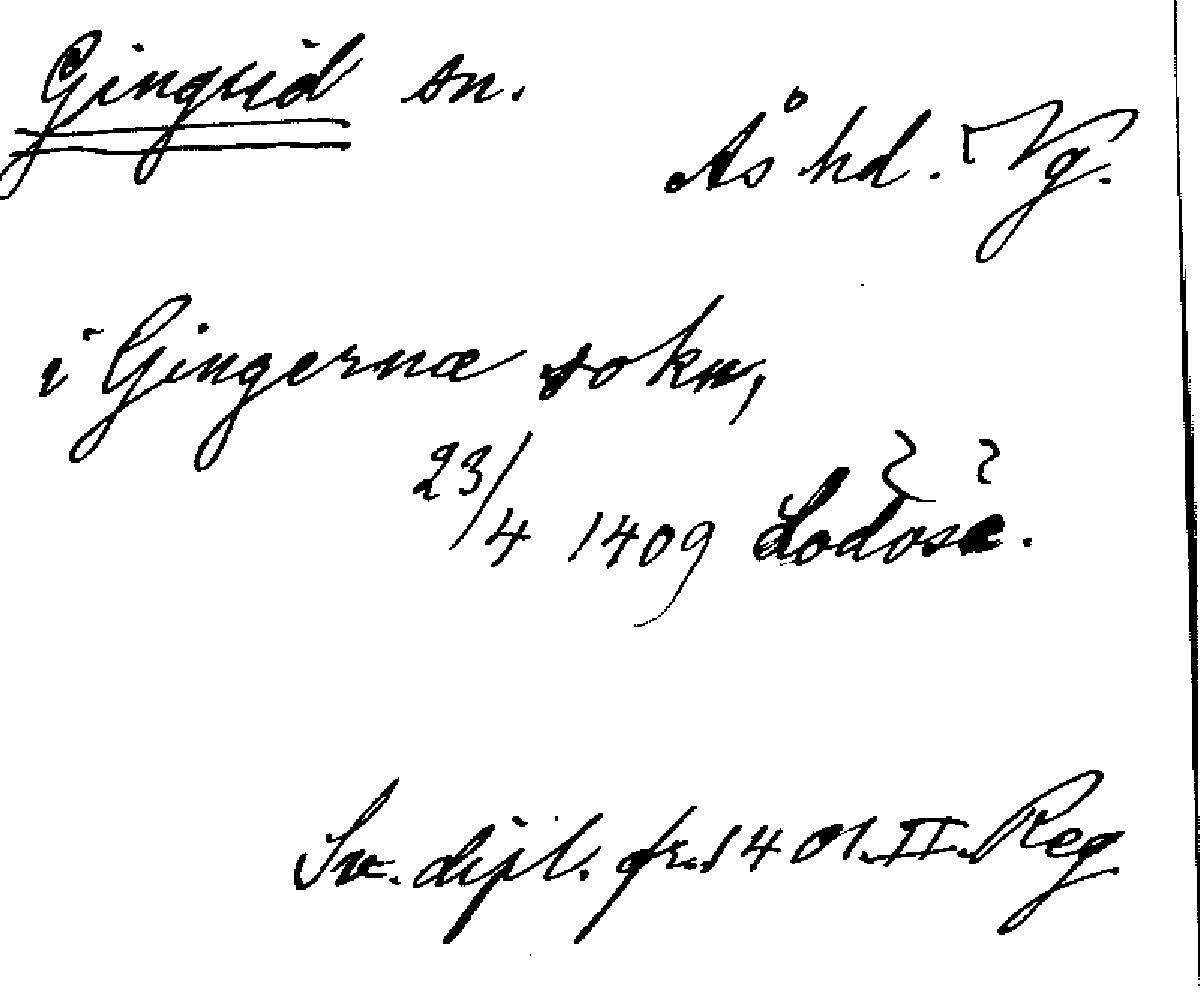 Gingrid sn.
Ås hd. Vg.
i Gingernæ sokn,
23/4 1409 Lodose.
Sv. dipl. fr. 1401. II. Reg